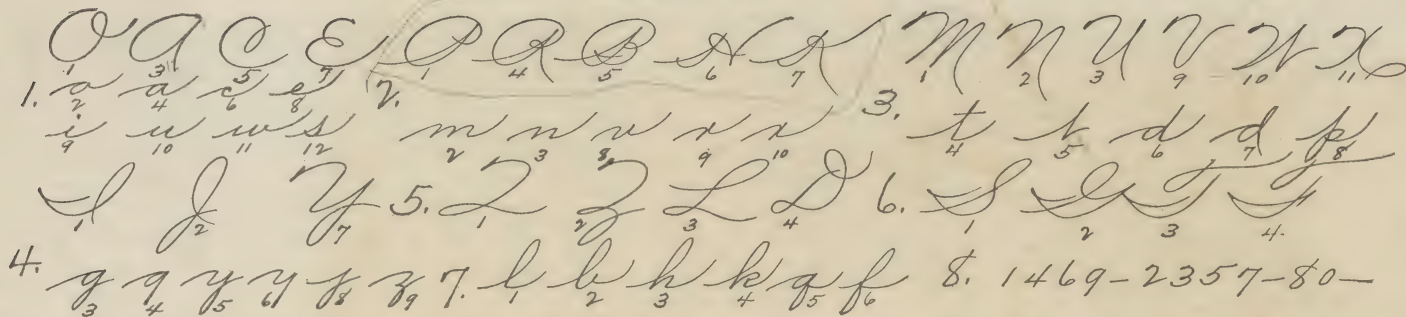 O A C E P R B H K M N U V W X
1 3 5 7 1 4 5 6 7 1 2 3 9 10 11
1. o a c e 2. 3.
2 4 6 8
i u w s m n v r x t t d d p
9 10 11 12 2 3 8 9 10 4 5 6 7 8
I J Y 5. Q Z L D 6. S G T F
1 2 7 1 2 3 4 1 2 3 4
4. g q y y j z 7. l b h k q f 8. 1469-2357-80-
3 4 5 6 8 9 1 2 3 4 5 6